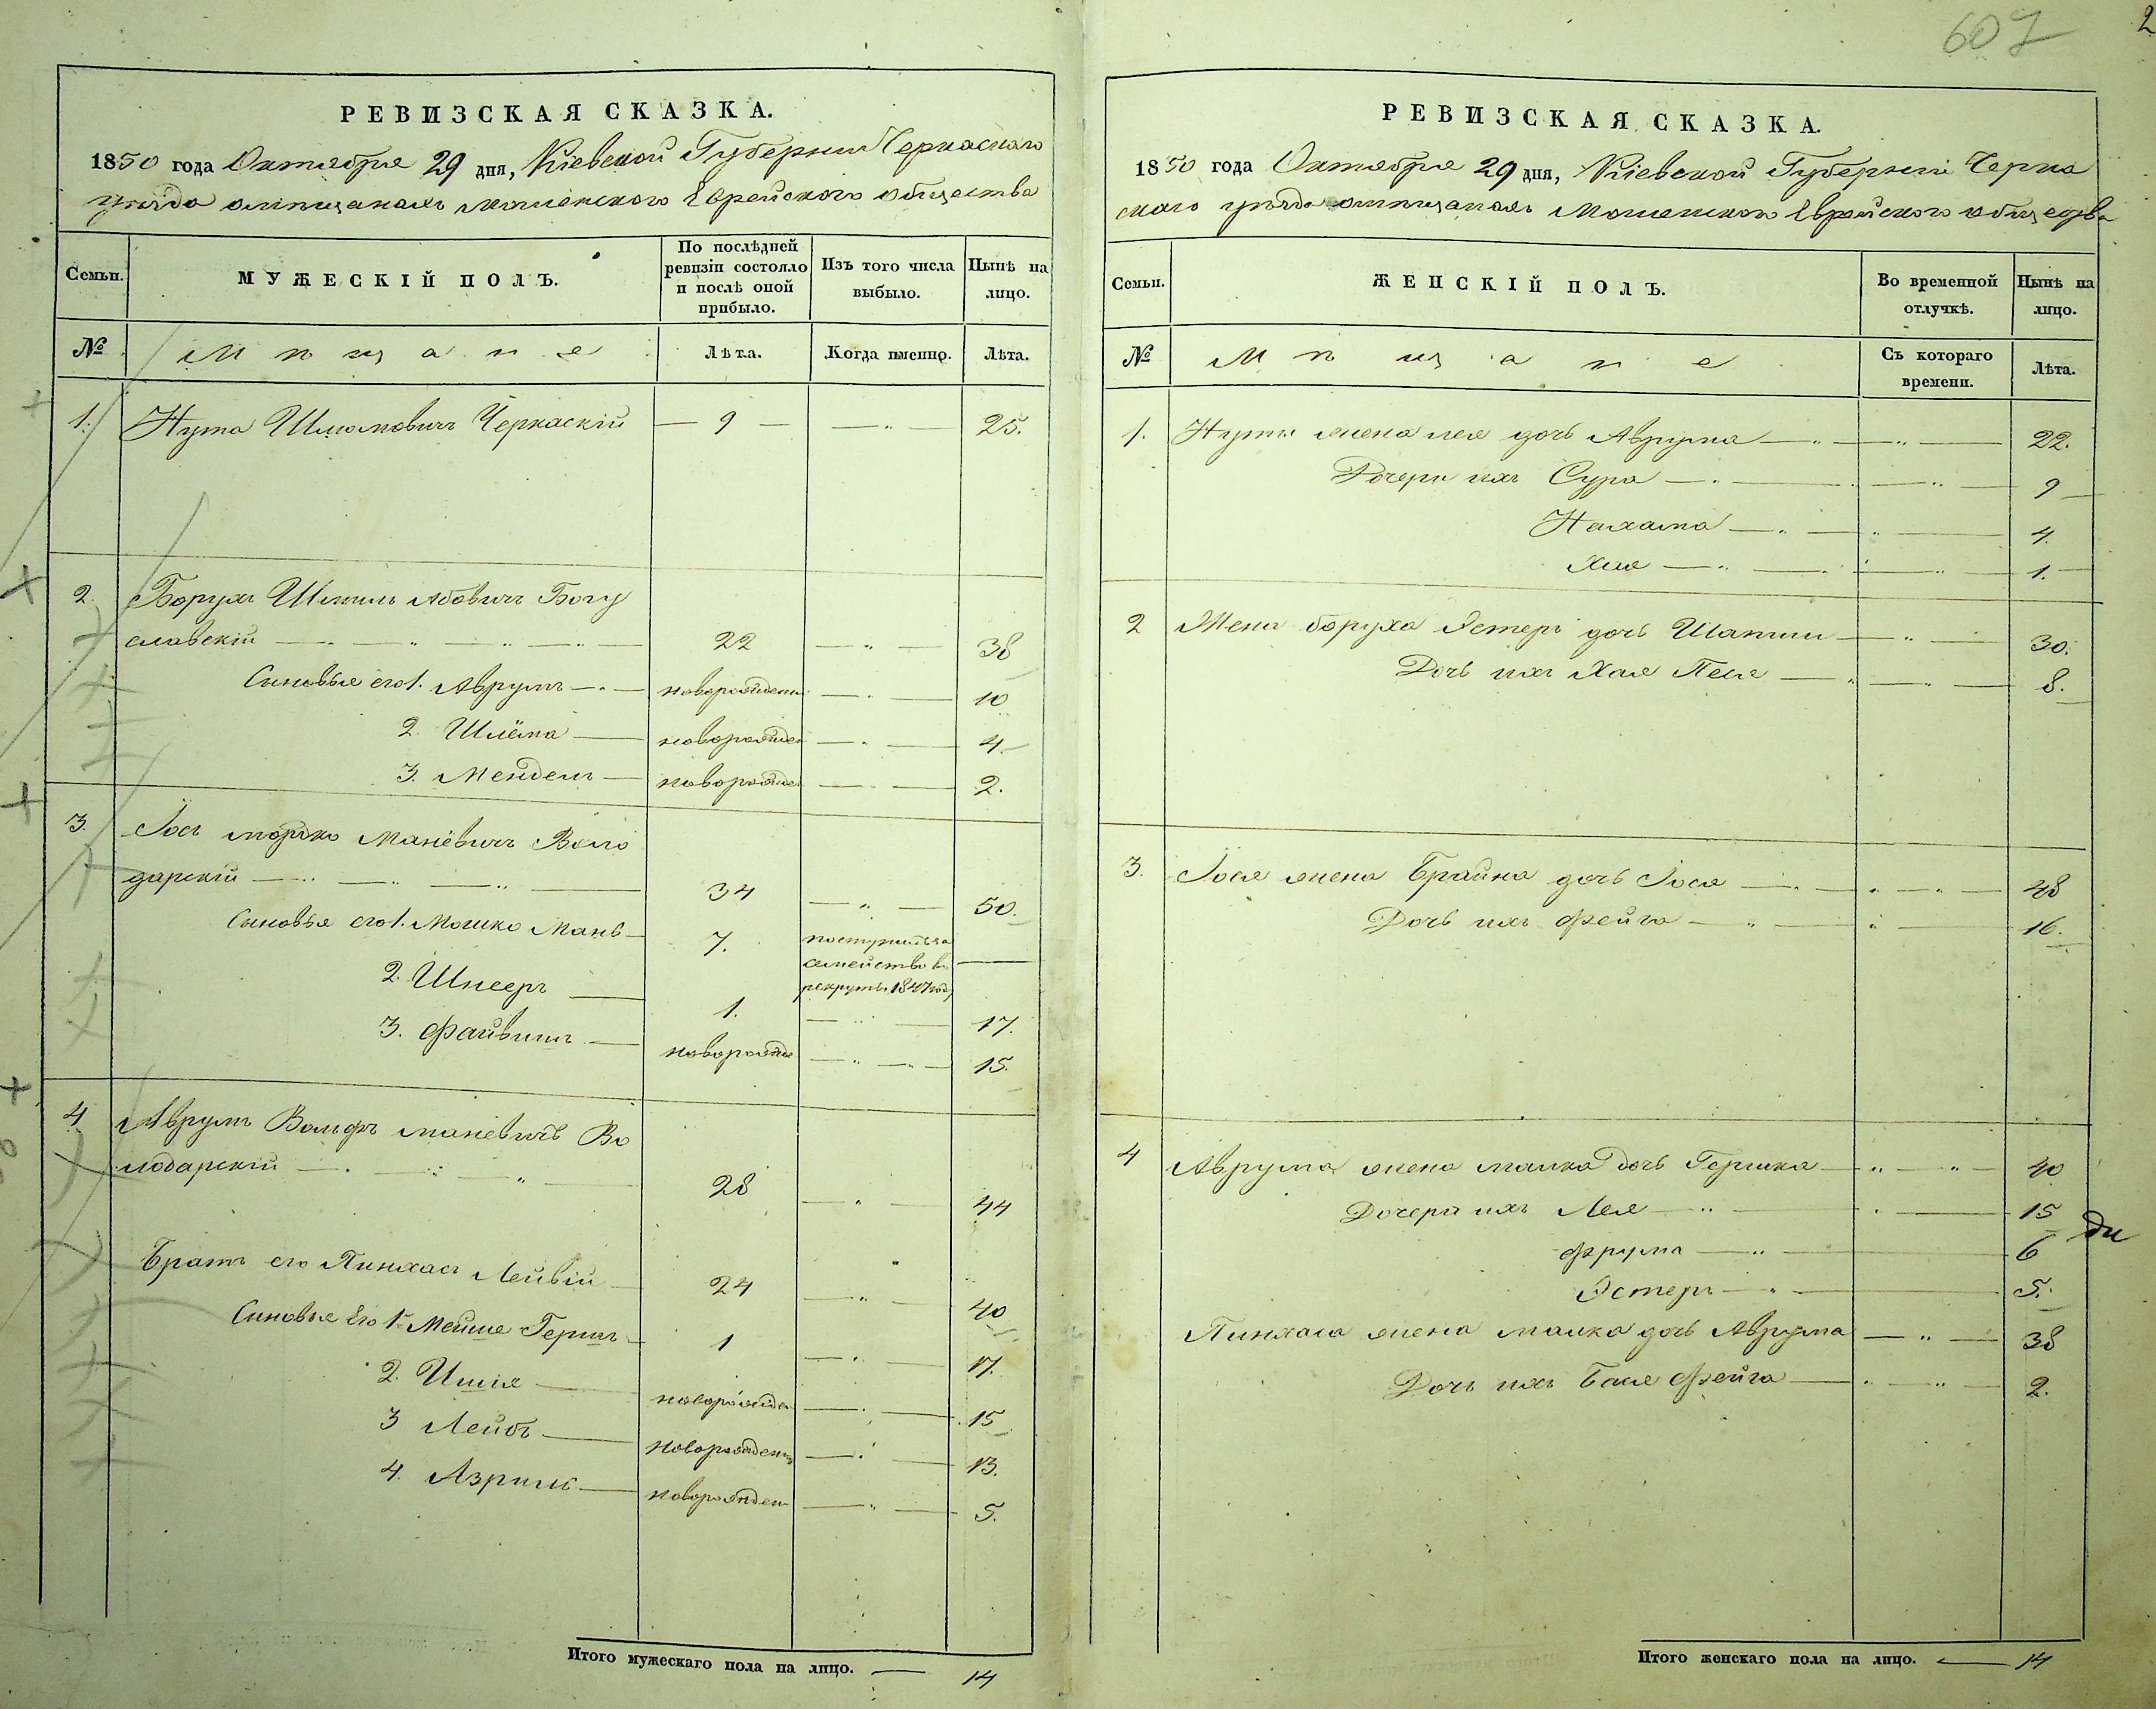 607
2
РЕВИЗСКАЯ СКАЗКА.
1850 года Октября 29 дня, Кіевской Губерніи Черкаскаго
уѣзда о мѣщанахъ Мошенскаго Еврейскаго общества
Семьи.
МУЖЕСКІЙ ПОЛЪ.
По послѣдней ревизіи состояло и послѣ оной прибыло.
Изъ того числа выбыло.
Нынѣ на лицо.
№
Мѣщане
Лѣта.
Когда именно.
Лѣта.
1. Нута Шліомовичъ Черкаскій — 9 — — „ — 25.
2. Борухъ Шмиль Абовичъ Богу
славскій — „ — „ — „ — 22 — „ — 38
Сыновья его 1. Аврумъ — новорожден — „ — 10
2. Шлёма — новорожден — „ — 4.
3. Мендель — новорожден — „ — 2.
3. Іосъ Мордко Маневичъ Воло
дарскій — „ — „ — „ — 34 — „ — 50.
Сыновья его 1. Мошко Мань — 7. поступилъ за
семейство въ —
рекруты 1847 году
2. Шнееръ — 1. — „ — 17.
3. Файвишъ — новорожде — „ — „ — 15.
4 Аврумъ Вольфъ Маневичъ Во
лодарскій — „ — „ — „ — 28 — „ — 44
Братъ его Пинхасъ Лейвій — 24 — „ — 40
Сыновья Его 1. Мейше Гершъ — 1 — „ — 17.
2. Ишія — новорожде — „ — 15
3 Лейбъ — новорожден — „ — 13.
4. Азриль — новорожден — „ — 5.
Итого мужескаго пола на лицо. — 14
РЕВИЗСКАЯ СКАЗКА.
1850 года Октября 29 дня, Кіевской Губерніи Черка
скаго уѣзда о мѣщанахъ Мошенскаго Еврейскаго общества
Семьи.
ЖЕНСКІЙ ПОЛЪ.
Во временной отлучкѣ.
Нынѣ на лицо.
№
Мѣщане
Съ котораго времени.
Лѣта.
1. Нуты жена Лея дочь Аврума — „ — „ — 22.
Дочери ихъ Сура — „ — „ — 9 —
Нахама — „ — „ — 4.
Хая — „ — „ — 1.
2 Жена Боруха Эстеръ дочь Шапши — „ — 30.
Дочь ихъ Хая Песя — „ — „ — 8.
3. Іося жена Брайна дочь Іося — „ — „ — 48
Дочь ихъ Фейга — „ — „ — 16.
4 Аврума жена Малка дочь Гершка — „ — „ — 40
Дочери ихъ Лея — „ — „ — 15
Фрума — „ — 6
Эстеръ — „ — 5.
Пинхаса жена Малка дочь Аврума — „ — 38
Дочь ихъ Бася Фейга — „ — „ — 2.
Итого женскаго пола на лицо. — 14